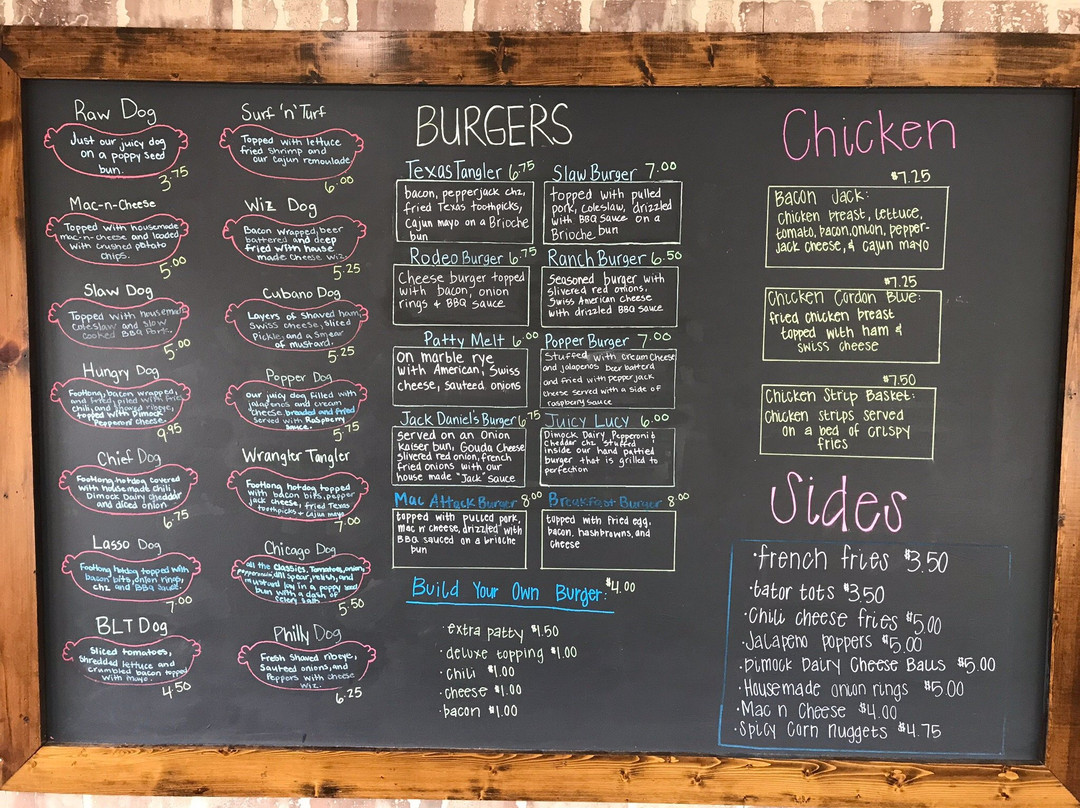 Raw Dog
Just our juicy dog
on a poppy seed
bun.
3.75
Mac-n-Cheese
Topped with housemade
mac-n-cheese and loaded
with crushed potato
chips.
5.00
Slaw Dog
Topped with housemade
coleslaw and slow
cooked BBQ Pork.
5.00
Hungry Dog
Footlong, bacon wrapped,
and fried, piled with fries
chili, and shaved ribeye,
topped with Dimock
Pepperoni cheese.
9.95
Chief Dog
Footlong hotdog covered
with housemade chili,
Dimock Dairy cheddar
and diced onion
6.75
Lasso Dog
Footlong hotdog topped with
bacon bits, onion rings,
chz and BBQ Sauce.
7.00
BLT Dog
Sliced tomatoes,
shredded lettuce and
crumbled bacon topped
with mayo.
4.50
Surf 'n' Turf
Topped with lettuce
fried shrimp and
our cajun remoulade
6.00
Wiz Dog
Bacon wrapped, beer
battered and deep
fried with house
made cheese wiz.
5.25
Cubano Dog
Layers of shaved ham,
Swiss cheese, sliced
Pickle, and a smear
of mustard.
5.25
Popper Dog
our juicy dog filled with
jalapenos and cream
cheese breaded and fried
served with Raspberry
sauce.
5.75
Wrangler Tangler
Footlong hotdog topped
with bacon bits, pepper
jack cheese, fried Texas
toothpicks & cajun mayo
7.00
Chicago Dog
all the classics. Tomatoes, onion,
pepperoncini, dill spear, relish, and
mustard lay in a poppy seed
bun with a dash of
celery salt
5.50
Philly Dog
Fresh shaved ribeye,
Sauteed onions, and
Peppers with cheese
wiz.
6.25
BURGERS
Texas Tangler 6.75
bacon, pepperjack chz,
fried Texas toothpicks,
cajun mayo on a Brioche
bun
Rodeo Burger 6.75
Cheese burger topped
with bacon, onion
rings & BBQ sauce
Patty Melt 6.00
on marble rye
with American, Swiss
cheese, sauteed onions
Jack Daniel's Burger 6.75
served on an Onion
kaiser bun, Gouda Cheese
slivered red onion, french
fried onions with our
house made "Jack" sauce
Mac Attack Burger 8.00
topped with pulled pork,
mac n' cheese, drizzled with
BBQ sauced on a brioche
bun
Slaw Burger 7.00
topped with pulled
pork, coleslaw, drizzled
with BBQ sauce on a
Brioche bun
Ranch Burger 6.50
Seasoned burger with
slivered red onions,
Swiss American cheese
with drizzled BBQ sauce
Popper Burger 7.00
Stuffed with cream cheese
and jalapenos beer batterd
and fried with pepper jack
cheese served with a side of
raspberry sauce
Juicy Lucy 6.00
Dimock Dairy Pepperoni &
cheddar chz stuffed
inside our hand pattied
burger that is grilled to
perfection
Breakfast Burger 8.00
topped with fried egg,
bacon, hashbrowns, and
cheese
Build Your Own Burger: $4.00
·extra patty $1.50
·deluxe topping $1.00
·chili $1.00
·cheese $1.00
·bacon $1.00
Chicken
$7.25
Bacon Jack:
chicken breast, lettuce,
tomato, bacon, onion, pepper-
jack cheese, & cajun mayo
$7.25
Chicken Cordon Blue:
fried chicken breast
topped with ham &
swiss cheese
$7.50
Chicken Strip Basket:
chicken strips served
on a bed of crispy
fries
Sides
·french fries $3.50
·tator tots $3.50
·Chili cheese fries $5.00
·Jalapeno poppers $5.00
·Dimock Dairy Cheese Balls $5.00
·Housemade onion rings $5.00
·Mac n Cheese $4.00
·Spicy Corn nuggets $4.75